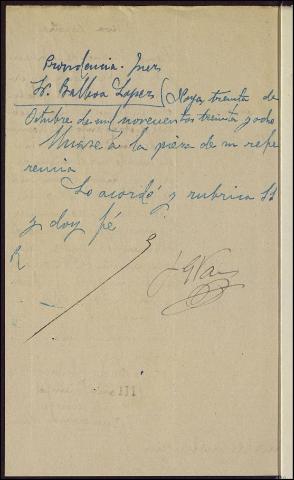 Providencia. Juez
Sr. Balboa López / Noya, treinta de
Octubre de mil novecientos treinta y ocho
Unase á la pieza de su refe
rencia
Lo acordó y rubrica SS
y doy fé
R